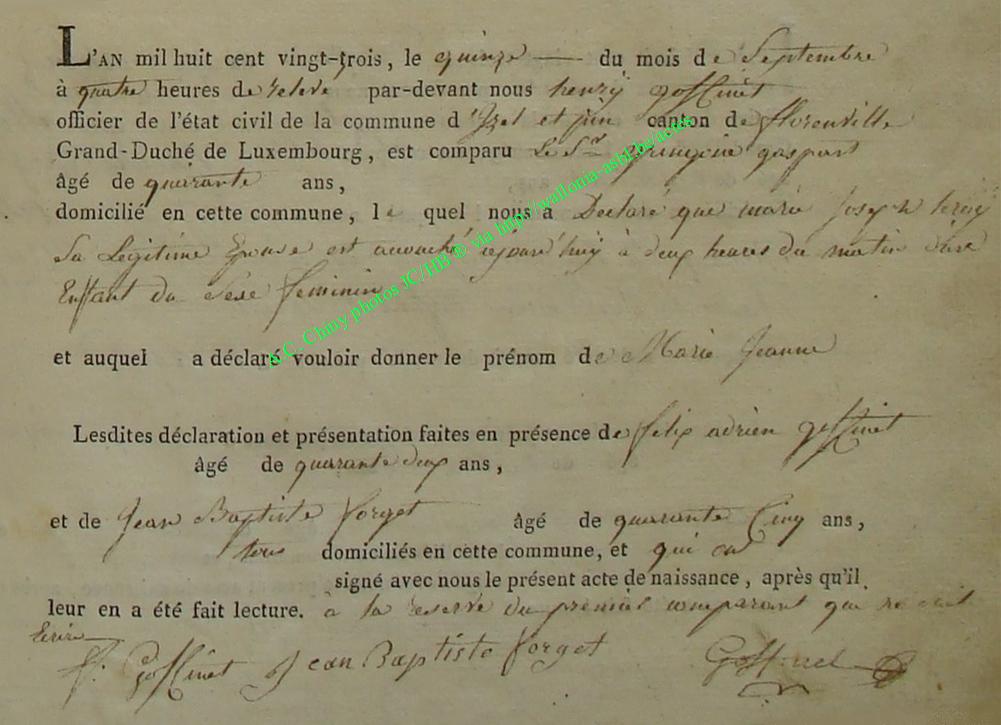 L'AN mil huit cent vingt-trois, le quinze du mois de Septembre
à quatre heures de relevé par-devant nous henry goffinet
officier de l'état civil de la commune d'Izel et pin canton de florenville
Grand-Duché de Luxembourg, est comparu Le Sr gaspart
âgé de quarante ans,
domicilié en cette commune, le quel nous a Declaré que marie joseph
Sa Legitime Epouse est accouché à deux heures du matin d'un
Enfant du Sexe feminin
et auquel a déclaré vouloir donner le prénom de Marie Jeanne
Lesdites déclaration et présentation faites en présence de felix adrien goffinet
âgé de quarante deux ans,
et de Jean Baptiste forget âgé de quarante Cinq ans,
tous domiciliés en cette commune, et qui ont
signé avec nous le présent acte de naissance, après qu'il
leur en a été fait lecture. à la reserve du premier comparant qui ne sait
Ecrire
f. Goffinet Jean Baptiste forget Goffinet
A.C. Chiny photos JC/HB © via http://wallonia-asbl.be/actes